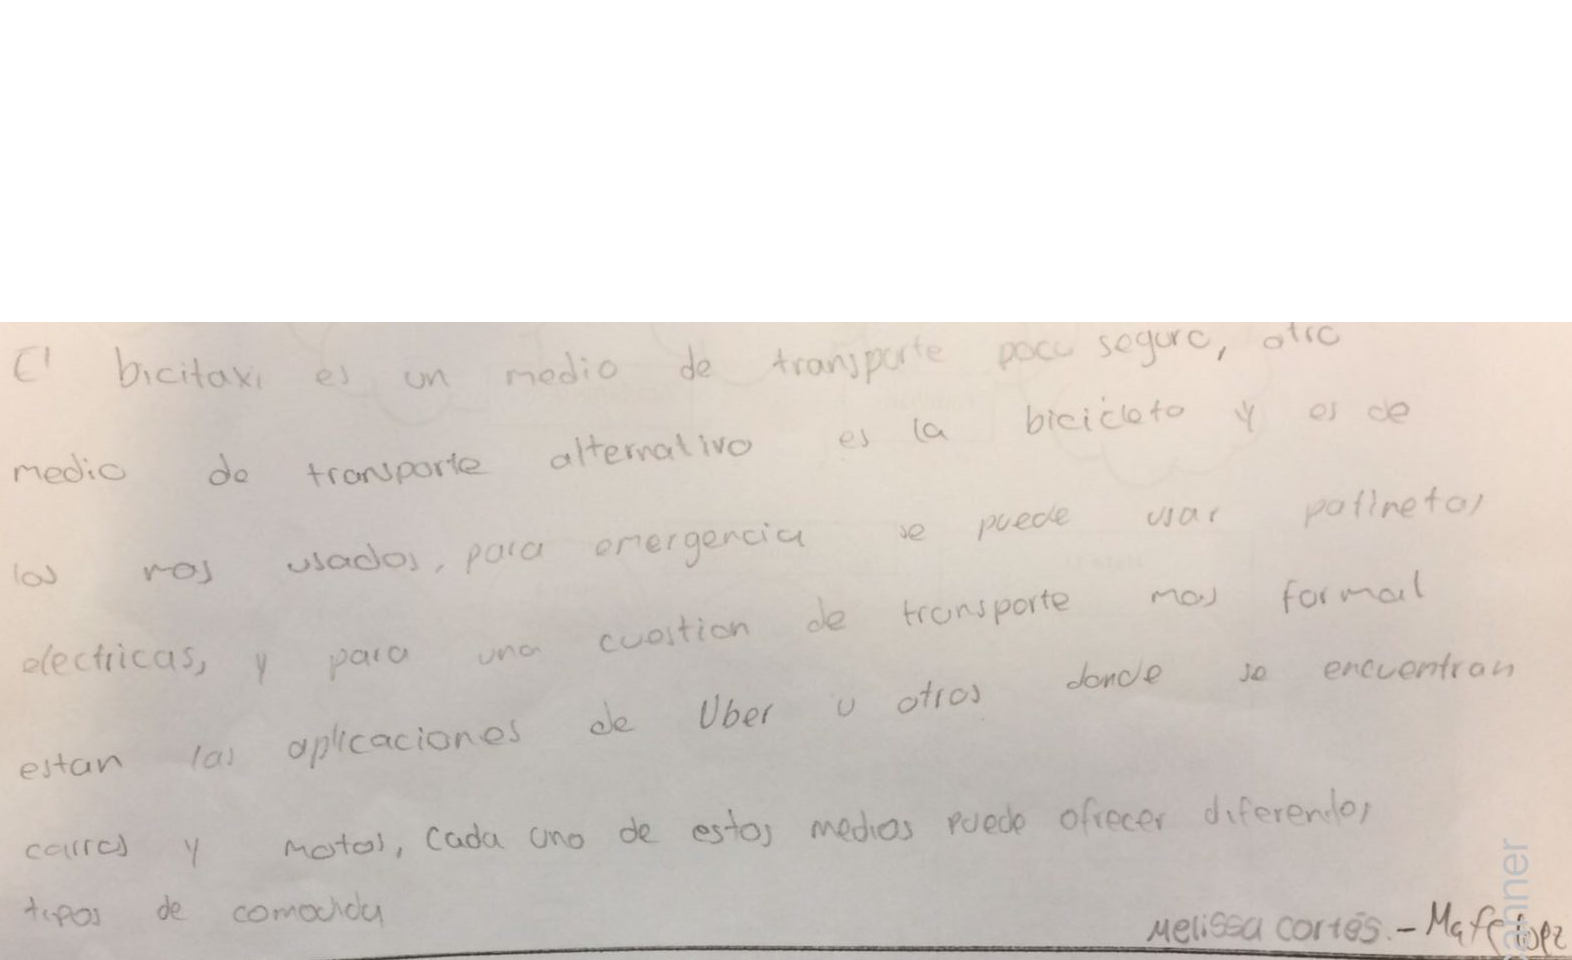 El bicitaxi es un medio de transporte poco seguro, otro
medio de transporte alternativo es la bicicleta y es de
los mas usados, para emergencia se puede usar patinetas
electricas, y para una cuestion de transporte mas formal
estan las aplicaciones de Uber u otros donde se encuentran
carros y motos, cada uno de estos medios puede ofrecer diferentes
tipos de comodida
Melissa Cortés. - Mafe Lopez
anner